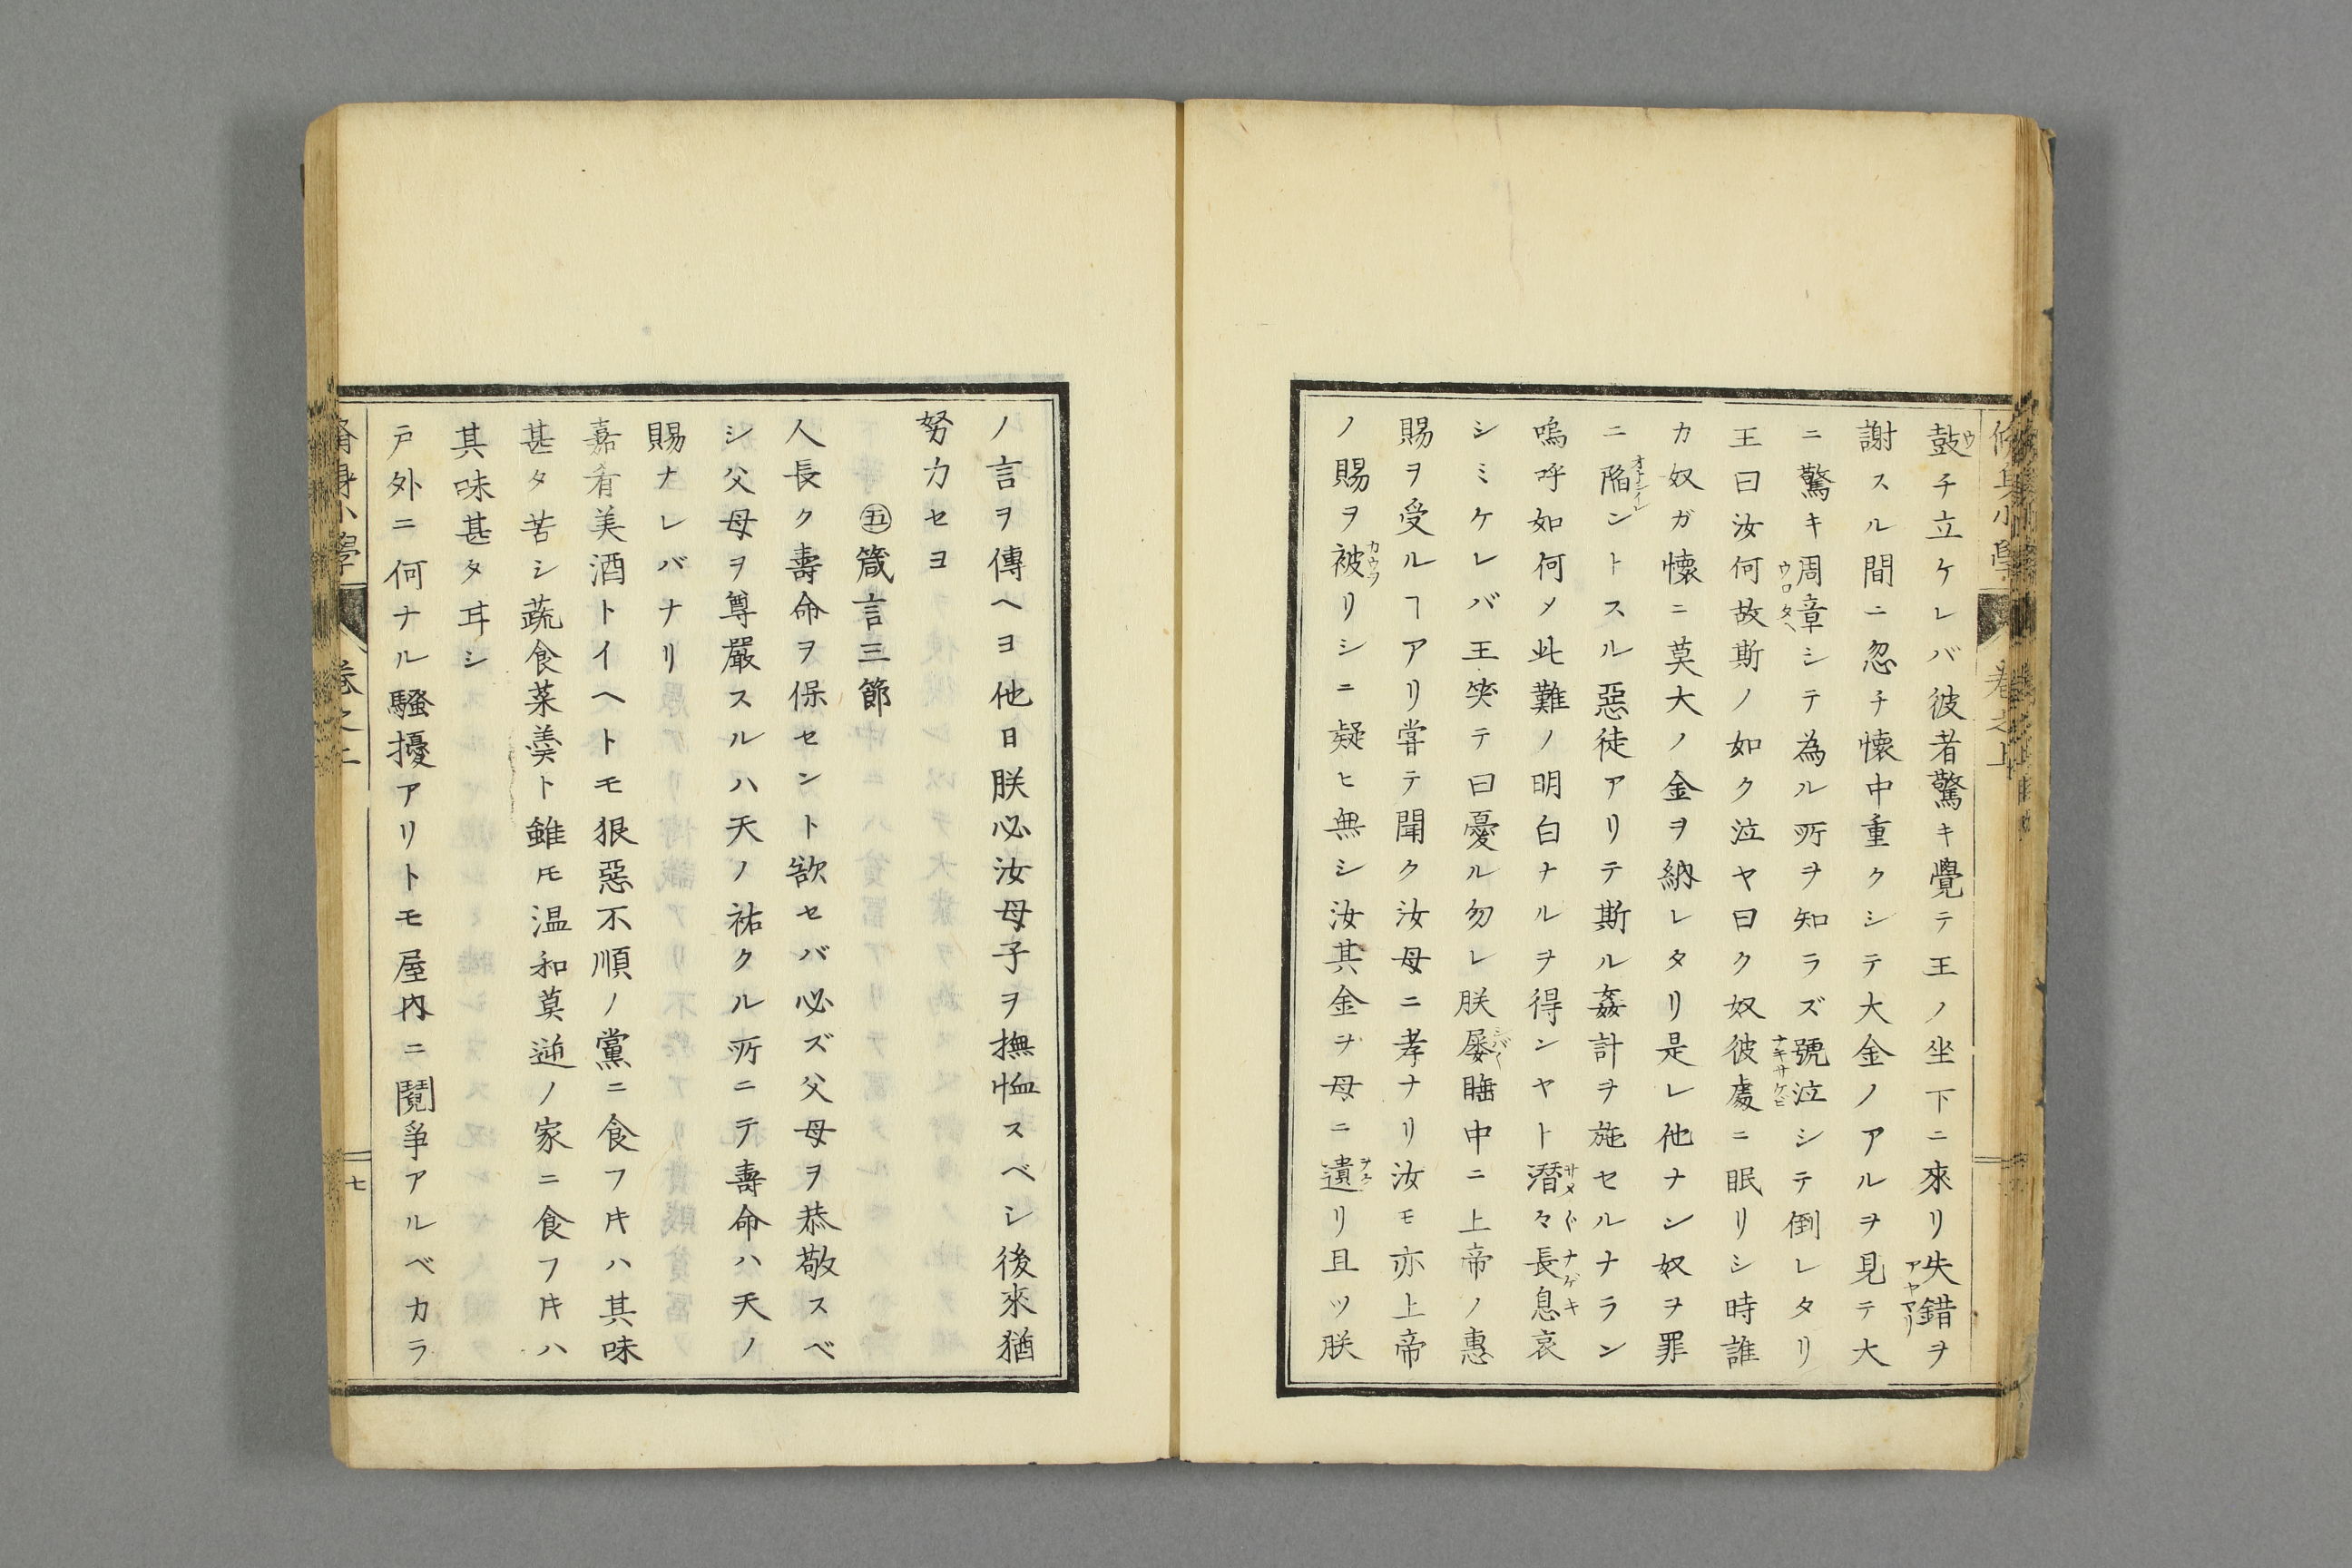 鼓チ立ケレバ彼者驚キ覺テ王ノ坐下ニ來リ失錯ヲ
謝スル間ニ忽チ懷中重クシテ大金ノアルヲ見テ大
ニ驚キ周章シテ為ル所ヲ知ラズ號泣シテ倒レタリ
王曰汝何故斯ノ如ク泣ヤ曰ク奴彼處ニ眠リシ時誰
カ奴ガ懷ニ莫大ノ金ヲ納レタリ是レ他ナシ奴ヲ罪
ニ陥ントスル惡徒アリテ斯ル姦計ヲ施セルナラン
嗚呼如何メ此難ノ明白ナルヲ得ンヤト潛々長息哀
シミケレバ王笑テ曰憂ル勿レ朕屡睡中ニ上帝ノ惠
賜ヲ受ルヿアリ甞テ聞ク汝母ニ孝ナリ汝モ亦上帝
ノ賜ヲ被リシニ疑ヒ無シ汝其金ヲ母ニ遺リ且ツ朕
ノ言ヲ傳ヘヨ他日朕必汝母子ヲ撫恤スベシ後來猶
努力セヨ
㊄箴言三節
人長ク壽命ヲ保セント欲セバ必ズ父母ヲ恭敬スベ
シ父母ヲ尊嚴スルハ天ノ祐クル所ニテ壽命ハ天ノ
賜ナレバナリ
嘉肴美酒トイヘトモ狠惡不順ノ黨ニ食フキハ其味
甚タ苦シ蔬食菜羹ト雖モ温和莫逆ノ家ニ食フキハ
其味甚タ耳シ
戸外ニ何ナル騷擾アリトモ屋内ニ鬩爭アルベカラ
脩身小學 卷之上 七